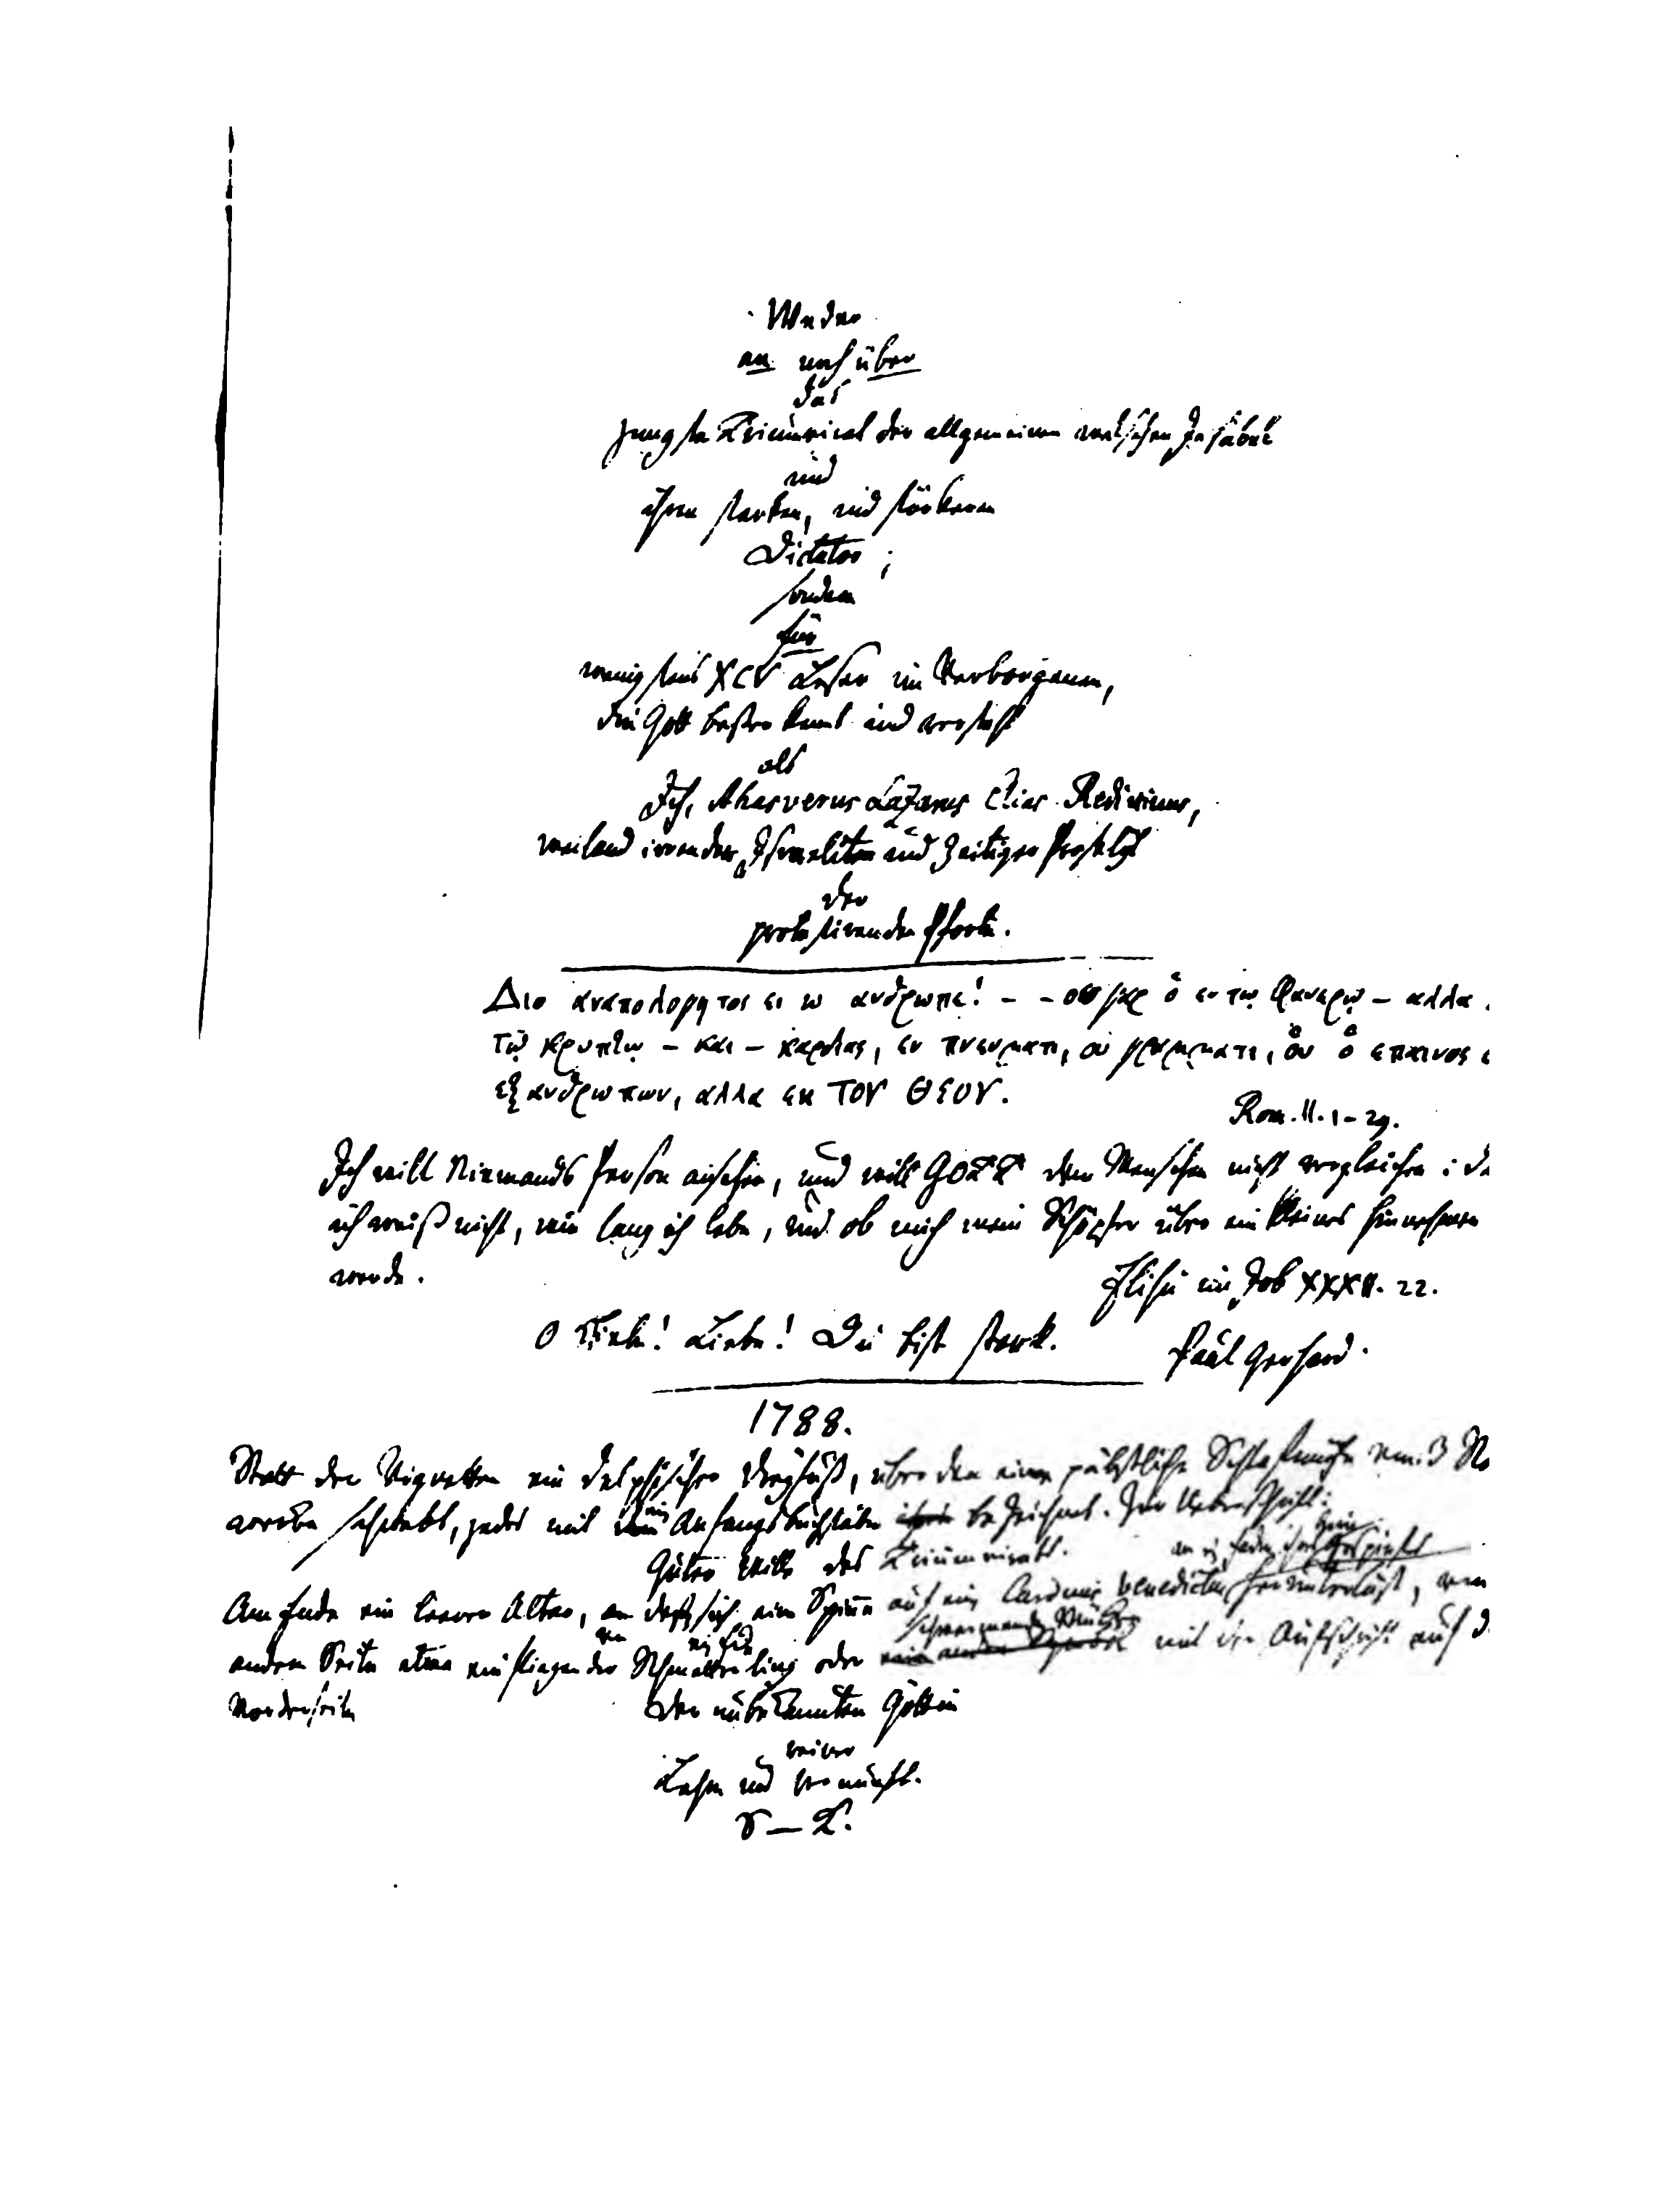 Weder
an noch über
das
jüngste Triumvirat der allgemeinen welschen Jesabel
und
ihren starken, und stärkeren
Dictator;
sondern
für
wenigstens XCV Leser im Verborgenen,
die Gott besser kennt und versteht
als
Ich, Ahasverus Lazarus Elias Redivivus,
weiland irrender Israelite und zeitiger Proselyt
der
protestirenden Pforte.
Διο αναπολογητος ει ω ανθρωπε! – – ου γαρ ὁ εν τῳ Φανερῳ – αλλα
τῳ κρυπτῳ – και – καρδιας, εν πνευματι, ου γραμματι, ὁυ ὁ επαινος
εξ ανθρωπων, αλλα εκ ΤΟΥ ΘΕΟΥ.
Rom. II. 1–29.
Ich will Niemands Person ansehen, und will GOTT dem Menschen nicht vergleichen: de
ich weiß nicht, wie lang ich lebe, und ob mich mein Schöpfer über ein kleines hinnehmen
werde.
Elihu im Job XXXII. 22.
O Liebe! Liebe! Du bist stark.
Paul Gerhard.
1788.
Statt der Vignetten ein delphischer Dreyfuß, über den eine päbstliche Schlafmütze
schwebt, jedes mit Anfangsbuchstaben bezeichnet. Zur Ueberschrift:
Guter Wille des Triumvirats.
Am Ende ein leerer Altar, an deßen sich eine Spinne auf ein Carduus benedictus herunterläßt, von
andern Seite etwa ein fliegender Schmetterling oder mit der Aufschrift auf d
Vorderseite
Der unbekannten Göttin
reiner
Lehre und Vernunft.